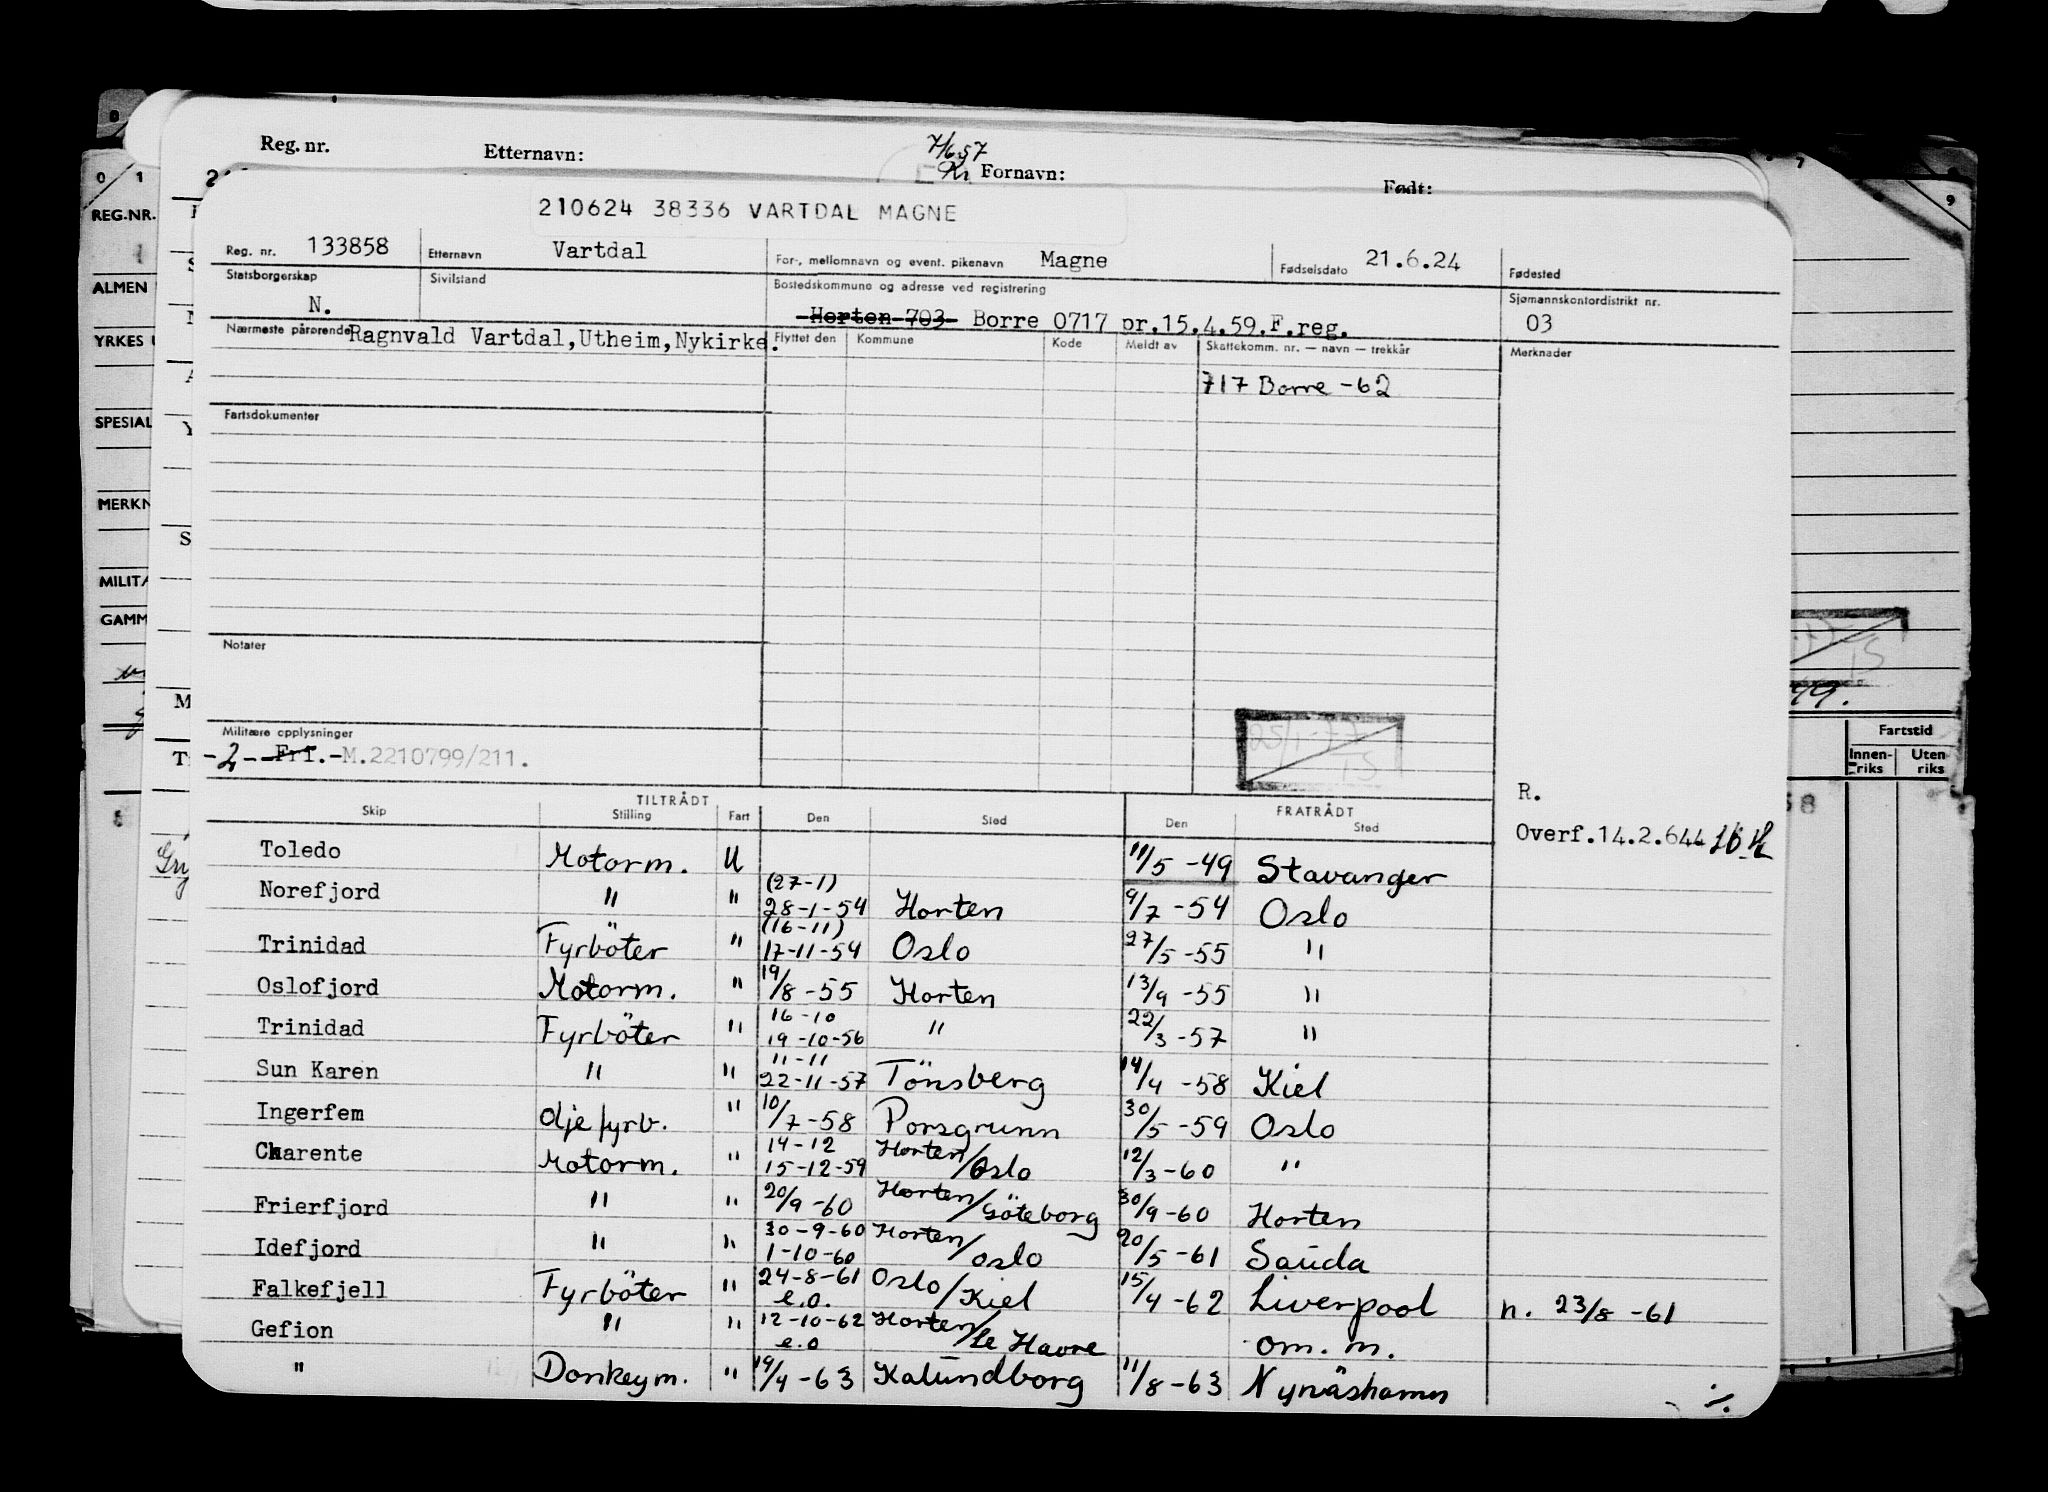 Reg. nr. Etternavn: 7/6 57 Fornavn: Født:
210624 38336 VARTDAL MAGNE
Reg. nr. 133858 Etternavn Vartdal For-, mellomnavn og event. pikenavn Magne Fødselsdato 21.6.24 Fødested
Statsborgerskap N. Sivilstand Bostedskommune og adresse ved registrering Sjømannskontordistrikt nr.
Horten 703 Borre 0717 pr.15.4.59.F.reg. 03
Nærmeste pårørende Ragnvald Vartdal,Utheim,Nykirke. Flyttet den Kommune Kode Meldt av Skattekomm. nr. — navn — trekkår Merknader
717 Borre -62
Fartsdokumenter
Notater
Militære opplysninger
-2--Fri.-M.2210799/211.
25/1-77
R.
Overf.14.2.64
TILTRÅDT FRATRÅDT
Skip Stilling Fart Den Sted Den Sted
Toledo Motorm. U 11/5 -49 Stavanger
Norefjord " " (27-1) 28-1-54 Horten 9/7 -54 Oslo
Trinidad Fyrböter " (16-11) 17-11-54 Oslo 27/5 -55 "
Oslofjord Motorm. " 19/8 -55 Horten 13/9 -55 "
Trinidad Fyrböter " 16-10 19-10-56 " 22/3 -57 "
Sun Karen " " 11-11 22-11-57 Tönsberg 14/4 -58 Kiel
Ingerfem Oljefyrb. " 10/7 -58 Porsgrunn 30/5 -59 Oslo
Charente Motorm. " 14-12 15-12-59 Horten/Oslo 12/3 -60 "
Frierfjord " " 20/9 -60 Horten/Göteborg 30/9 -60 Horten
Idefjord " " 30-9-60 1-10-60 Horten/Oslo 20/5 -61 Sauda
Falkefjell Fyrböter " 24-8-61 e.o. Oslo/Kiel 15/4 -62 Liverpool n. 23/8 -61
Gefion " " 12-10-62 e.o Horten/Le Havre om. m.
" Donkeym. " 19/4 -63 Kalundborg 11/8 -63 Nynäshamn
./.
0 1
REG.NR.
ALMEN
YRKES
SPESIAL
MERKN
MILITÆ
GAMM
7
9
Fartstid
Innen-riks Uten riks